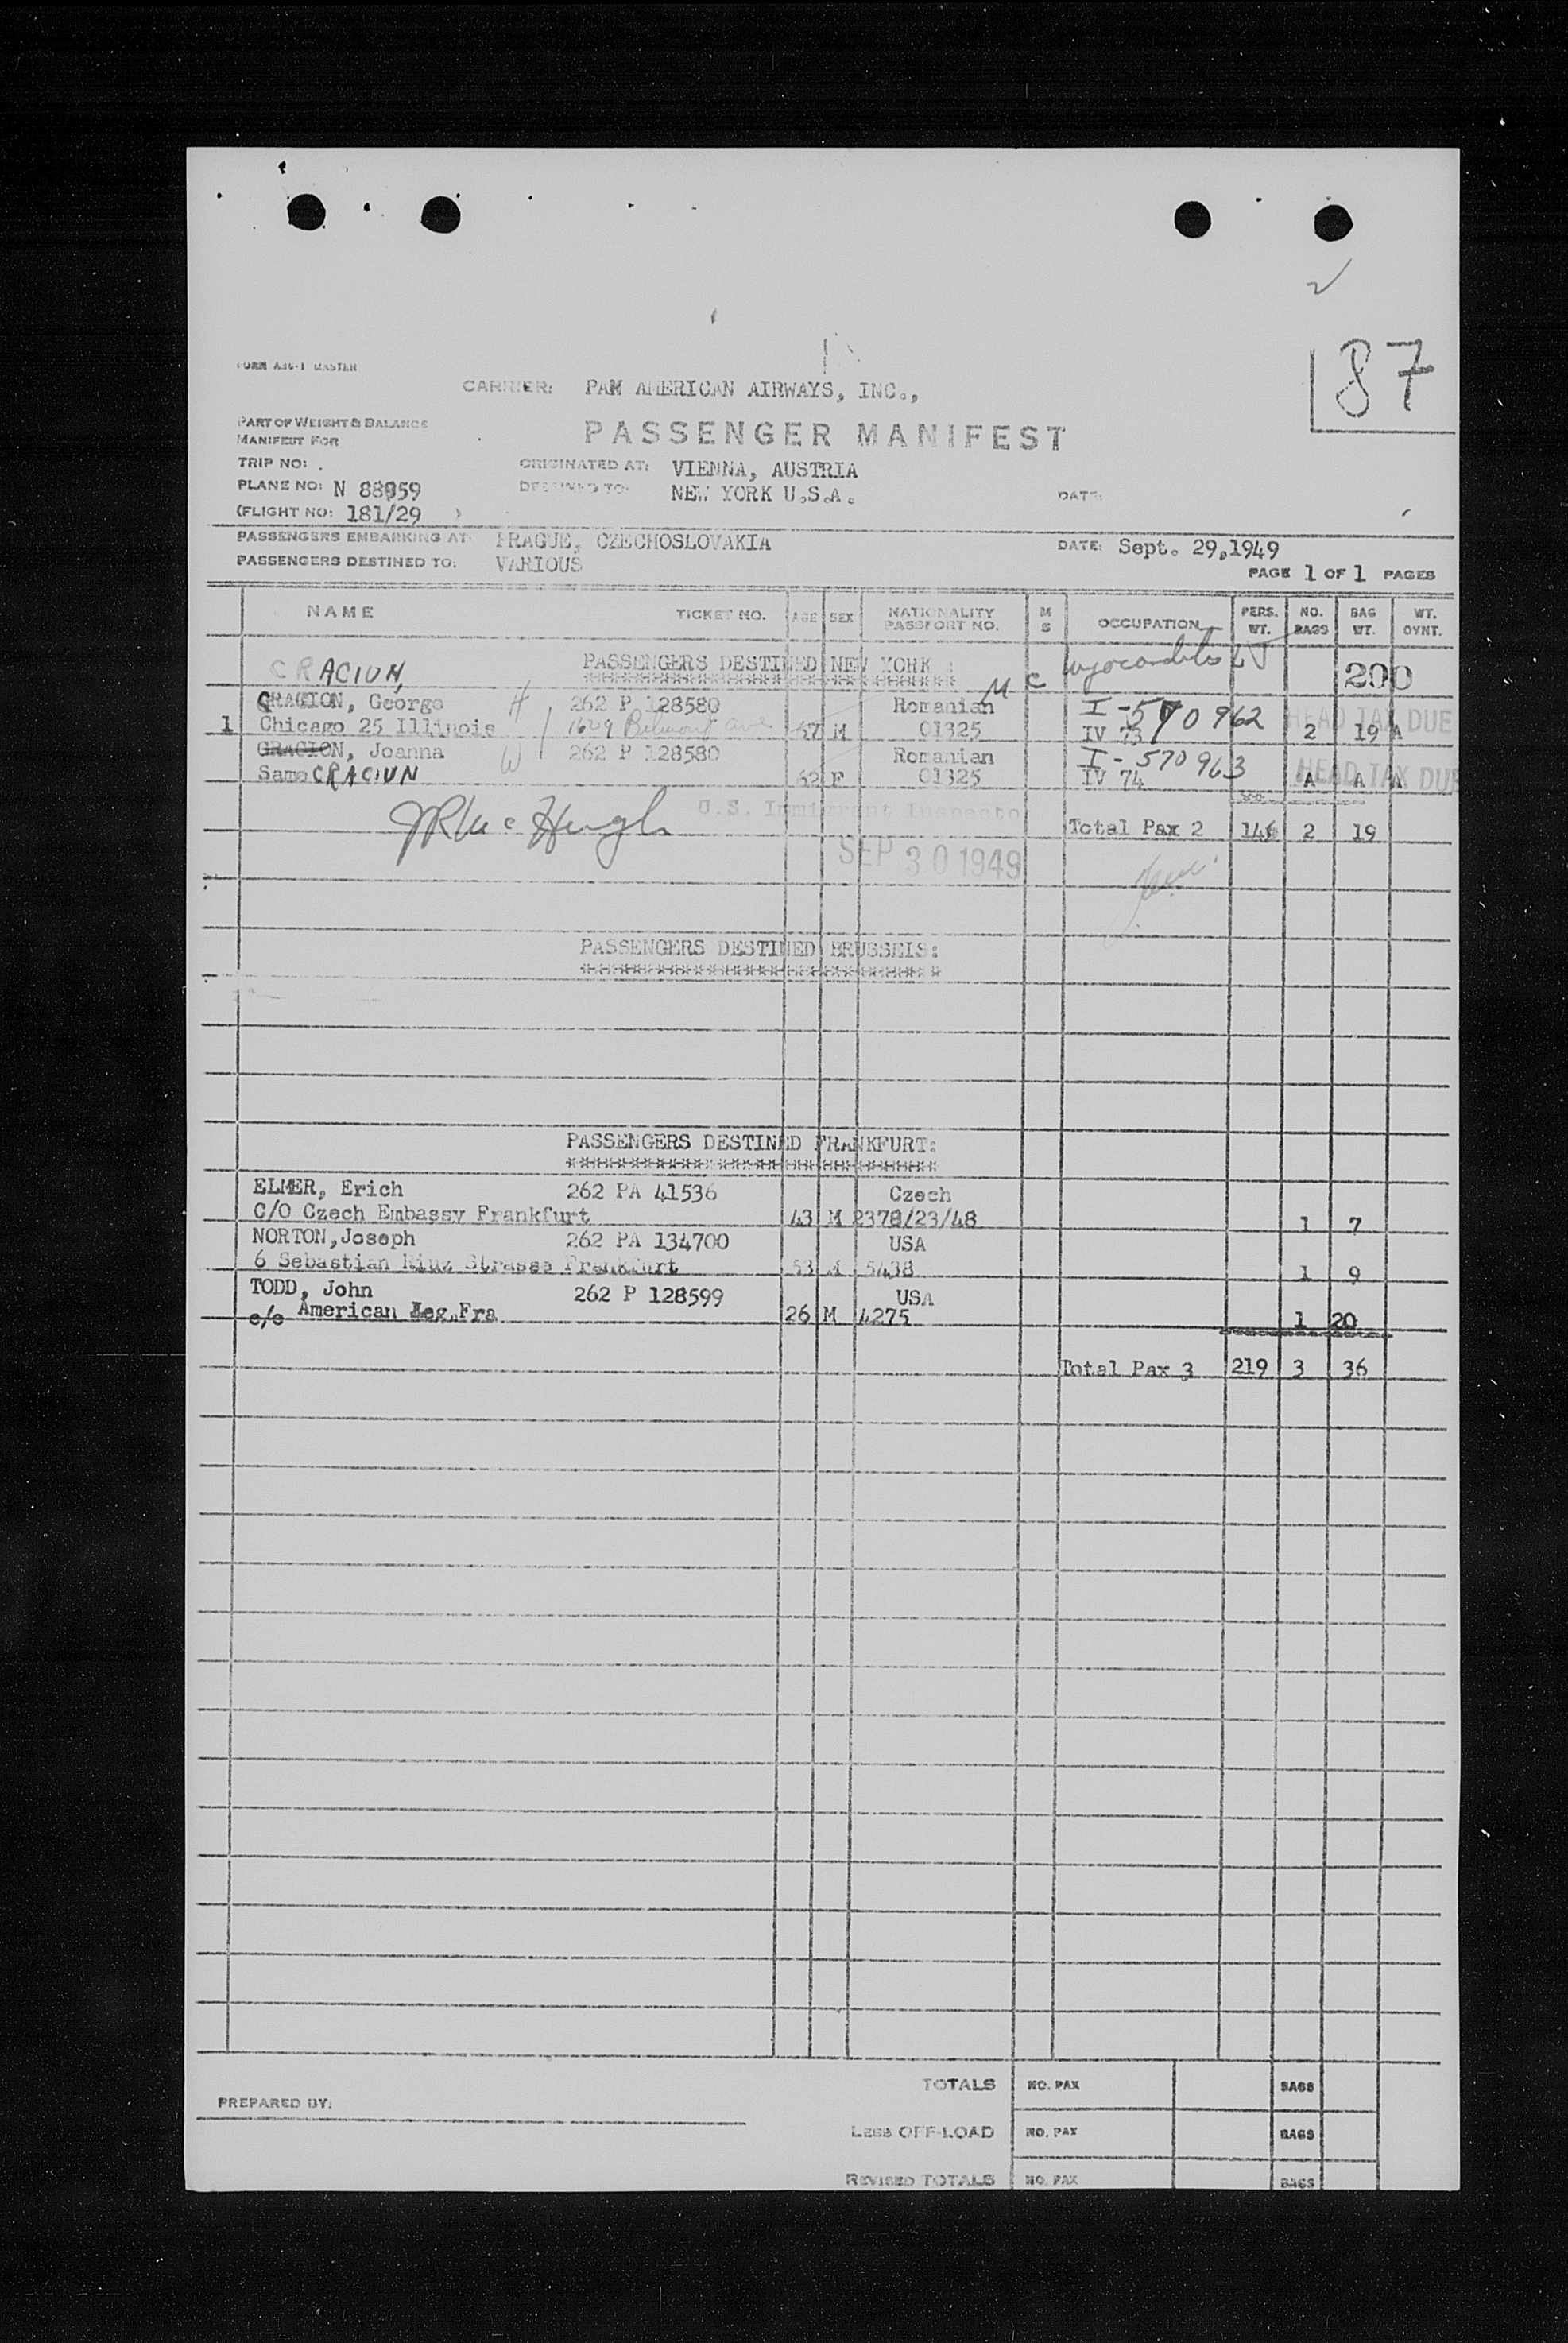 87
FORM A86-1 MASTER
CARRIER: PAM AMERICAN AIRWAYS, INC.,
PART OF WEIGHT & BALANCE
MANIFEST FOR
PASSENGER MANIFEST
TRIP NO: .
ORIGINATED AT: VIENNA, AUSTRIA
PLANE NO: N 88959
DESTINED TO: NEW YORK U.S.A.
DATE:
(FLIGHT NO: 181/29 )
PASSENGERS EMBARKING AT: PRAGUE, CZECHOSLOVAKIA
DATE: Sept. 29,1949
PASSENGERS DESTINED TO: VARIOUS
PAGE 1 OF 1 PAGES
NAME TICKET NO. AGE SEX NATIONALITY PASSPORT NO. M S OCCUPATION PERS. WT. NO. BAGS BAG WT. WT. OVNT.
CRACIUN, PASSENGERS DESTINED NEW YORK : 200
*****************************
CRACION, George H 262 P 128580 Romanian I-570962 HEAD TAX DUE
1 Chicago 25 Illinois 1629 Belmont ave 67 M 01325 IV 73 2 19 A
GRACION, Joanna W 262 P 128580 Romanian I-570963 HEAD TAX DUE
Same CRACIUN 62 F 01325 IV 74 A A A
U.S. Immigrant Inspector
JR McHugh
Total Pax 2 146 2 19
SEP 30 1949
PASSENGERS DESTINED BRUSSELS:
*****************************
PASSENGERS DESTINED FRANKFURT:
*****************************
ELMER, Erich 262 PA 41536 Czech
C/O Czech Embassy Frankfurt 43 M 2378/23/48 1 7
NORTON,Joseph 262 PA 134700 USA
6 Sebastian Strasse Frankfurt 53 M 5438 1 9
TODD, John 262 P 128599 USA
c/o American Leg.Fra 26 M 4275 1 20
Total Pax 3 219 3 36
TOTALS NO. PAX BAGS
PREPARED BY:
LESS OFF-LOAD NO. PAX BAGS
REVISED TOTALS NO. PAX BAGS